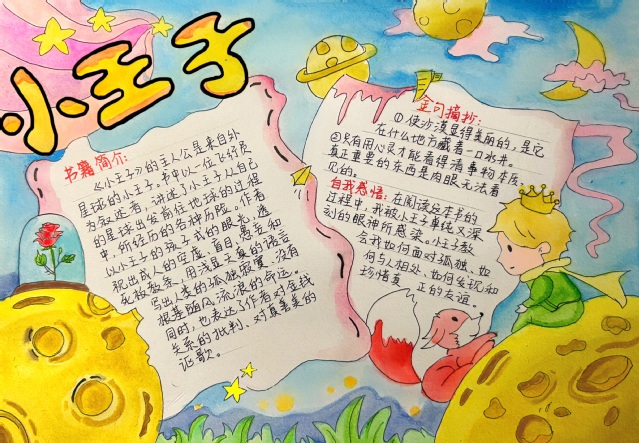 小王子
书籍简介:
《小王子》的主人公是来自外
星球的小王子。书中以一位飞行员
为叙述者,讲述了小王子从自己
的星球出发前往地球的过程
中,所经历的各种历险。作者
以小王子的孩子式的眼光,透
视出成人的空虚、盲目,愚妄和
死板教条,用浅显天真的语言
写出人类的孤独寂寞,没有
根基随风流浪的命运。
同时,也表达了作者对金钱
关系的批判,对真善美的
讴歌。
金句摘抄:
①使沙漠显得美丽的,是它
在什么地方藏着一口水井。
②只有用心灵才能看得清事物本质,
真正重要的东西是肉眼无法看
见的。
自我感悟:在阅读这本书的
过程中,我被小王子单纯又深
刻的眼神所感染。小王子教
会我如何面对孤独、如
何与人相处、如何发现和
珍惜真正的友谊。